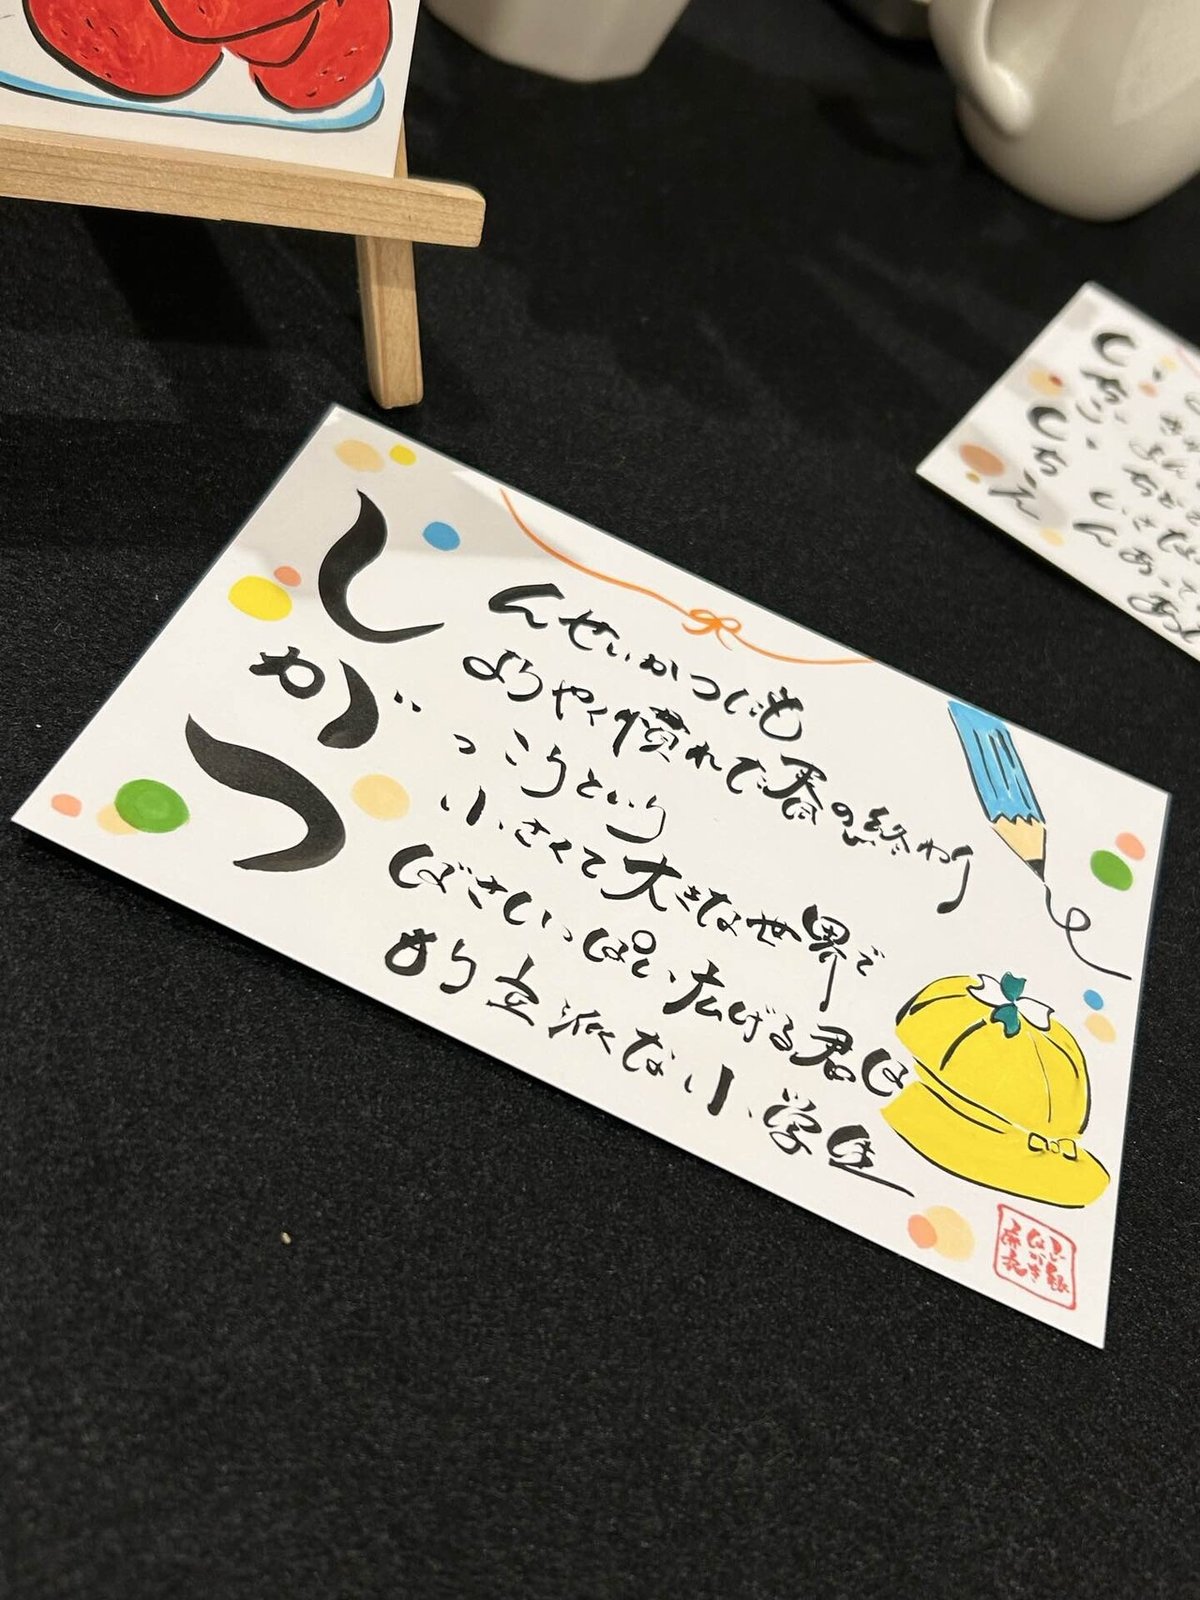 しんせいかつにも
ようやく慣れた春の終わり
がっこうという
小さくて大きな世界で
つばさいっぱい広げる君は
もう立派な小学生